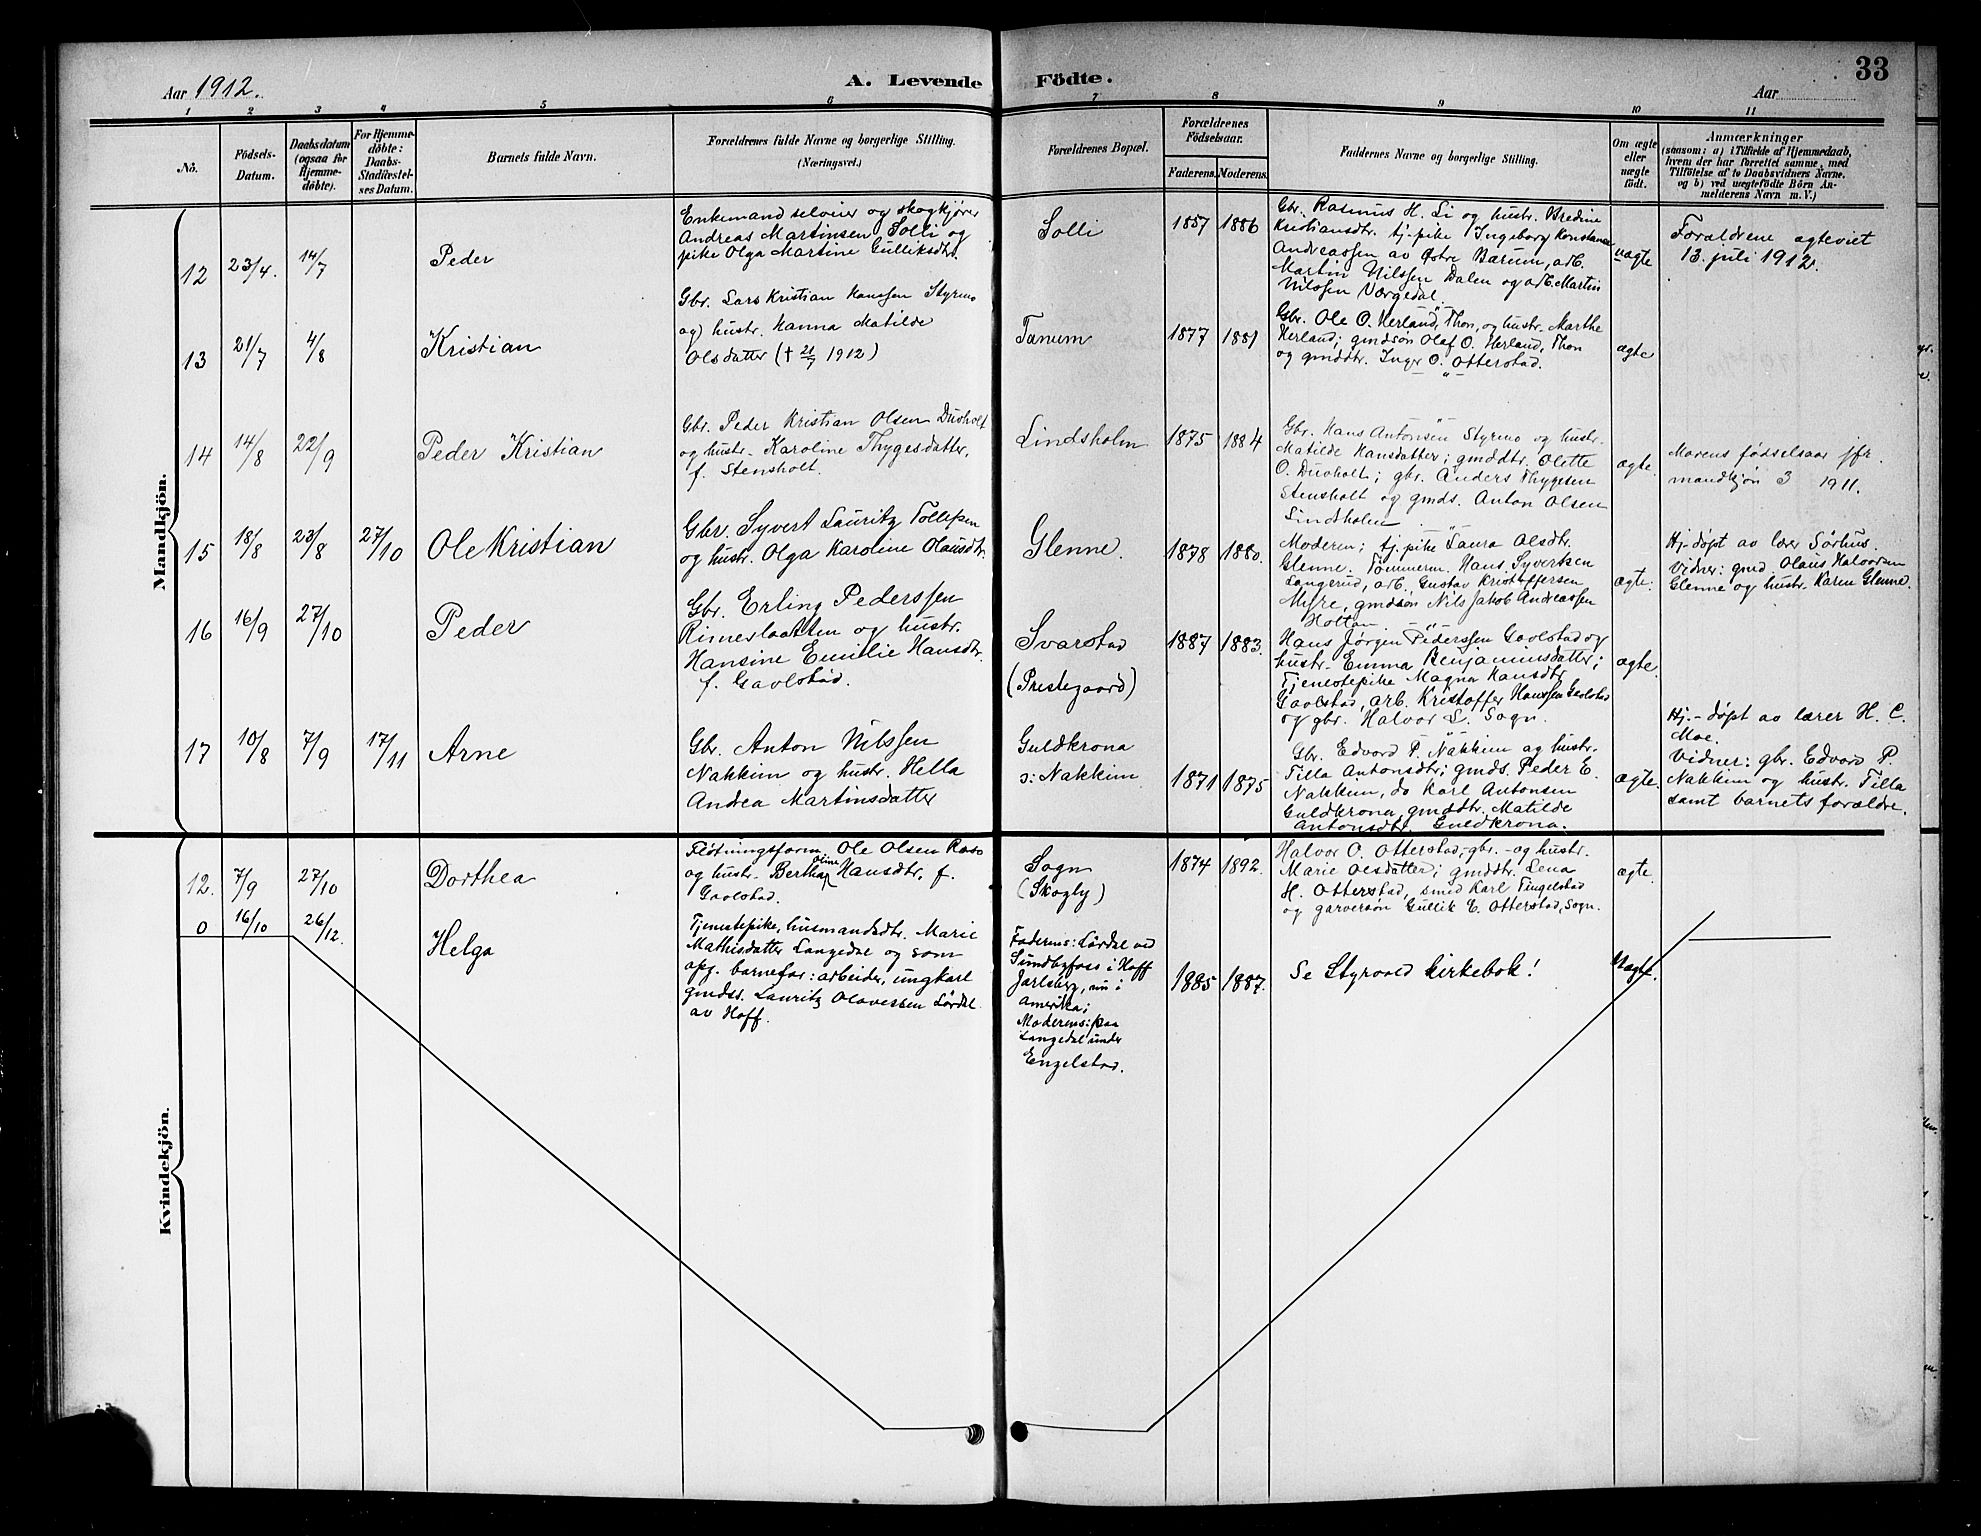 Aar 1912.
A. Levende Födte.
33
Aar
1 2 3 4 5 6 7 8 9 10 11
No.
Födsels-Datum.
Daabsdatum (ogsaa for Hjemme-döbte).
For Hjemme-döbte: Daabs-Stadfæstel-ses Datum.
Barnets fulde Navn.
Forældrenes fulde Navne og borgerlige Stilling. (Næringsvei.)
Forældrenes Bopæl.
Forældrenes Födselsaar.
Faderens. Moderens.
Faddernes Navne og borgerlige Stilling.
Om ægte eller uægte födt.
Anmærkninger
(saasom: a) i Tilfælde af Hjemmedaab, hvem der har forrettet samme, med Tilföielse af to Daabsvidners Navne, og b) ved uægtefödte Börn An-melderens Navn m. V.)
Mandkjön.
12 23/4. 14/7 Peder
Enkemand selveier og skogkjører
Andreas Martinsen Solli og
pike Olga Martine Gulliksdtr.
Solli 1857 1886
Gbr. Rasmus H. Li og hustr. Bredine
Kristiansdtr. tj-pike Ingeborg Konstanse
Andreassen av Østre Bærum, arb.
Martin Nilssen Dalen og arb. Martin
Nilssen Værgedal.
uægte
Forældrene egteviet
13. juli 1912.
13 21/7 4/8 Kristian
Gbr. Lars Kristian Hanssen Styrmo
og hustr. Hanna Matilde
Olsdatter († 21/7 1912)
Tanum 1877 1881
Gbr. Ole O. Herland, Thon, og hustr. Marthe
Herland; gmdsøn Olaf O. Herland, Thon
og gmddtr. Inger O. Otterstad.
ægte
14 14/8 22/9 Peder Kristian
Gbr. Peder Kristian Olsen Duoholt
og hustr. Karoline Thygesdatter,
f. Stensholt.
Lindsholm 1875 1884
Gbr. Hans Antonsen Styrmo og hustr.
Matilde Hansdatter; gmddtr. Olette
O. Duoholt; gbr. Anders Thygesen
Stensholt og gmds. Anton Olsen
Lindsholm
ægte.
Morens fødselsaar jfr.
mandkjøn 3 1911.
15 18/8 23/8 27/10 Ole Kristian
Gbr. Syvert Lauritz Tollefsen
og hustr. Olga Karoline Olausdtr.
Glenne. 1878 1880.
Moderen; tj.pike Laura Olsdtr.
Glenne. Tømmerm. Hans Syvertsen
Langerud, arb. Gustav Kristoffersen
Myre, gmdsøn Nils Jakob Andreassen
Holtan.
ægte.
Hj-døpt av lærer Sørhus.
Vidner: gmd. Olaus Halvorsen
Glenne og hustr. Karen Glenne.
16 16/9 27/10 Peder
Gbr. Erling Pederssen
Rimeslaatten og hustr.
Hansine Emilie Hansdtr.
f. Gavlstad.
Svarstad
(Prestegaard)
1887 1883.
Hans Jørgen Pederssen Gavlstad og
hustr. Emma Benjaminsdatter;
Tjenestepike Magna Hansdtr
Gavlstad, arb. Kristoffer Hanssen Gavlstad
og gbr. Halvor L. Sogn.
ægte.
17 10/8 7/9 17/11 Arne
Gbr. Anton Nilssen
Nakkim og hustr. Hella
Andrea Martinsdatter
Guldkrona
ɔ: Nakkim
1871 1875
Gbr. Edvard P. Nakkim og hustr.
Tilla Antonsdtr; gmds. Peder E.
Nakkim, do Karl Antonsen
Guldkrona, gmddtr. Matilde
Antonsdtr. Guldkrona.
ægte.
Hj.-døpt av lærer H. C.
Moe.
Vidner: gbr. Edvard P.
Nakkim og hustr. Tilla
samt barnets forældre.
Kvindekjön.
12. 7/9 27/10 Dorthea
Fløtningsform. Ole Olsen
og hustr. Berthe Oline Hansdtr, f.
Gavlstad.
Sogn
(Skogly)
1874 1892.
Halvor O. Otterstad, gbr. og hustr.
Marie Olsdatter; gmddtr. Lena
H. Otterstad, smed Karl Tingelstad
og garversøn Gullik E. Otterstad, Sogn.
ægte.
0 16/10 26/12. Helga
Tjenestepike, husmandsdtr. Marie
Mathisdatter Langedal og som
opg. barnefar: arbeider, ungkarl
gmdss. Lauritz Olavessen Lørdal
av Hoff.
Faderens: Lørdal ved
Sundbyfoss i Hoff
Jarlsberg, nu i
Amerika;
Moderens: paa
Langedal under
Engelstad.
1885 1887.
Se Styrvold kirkebok!
Uægte.